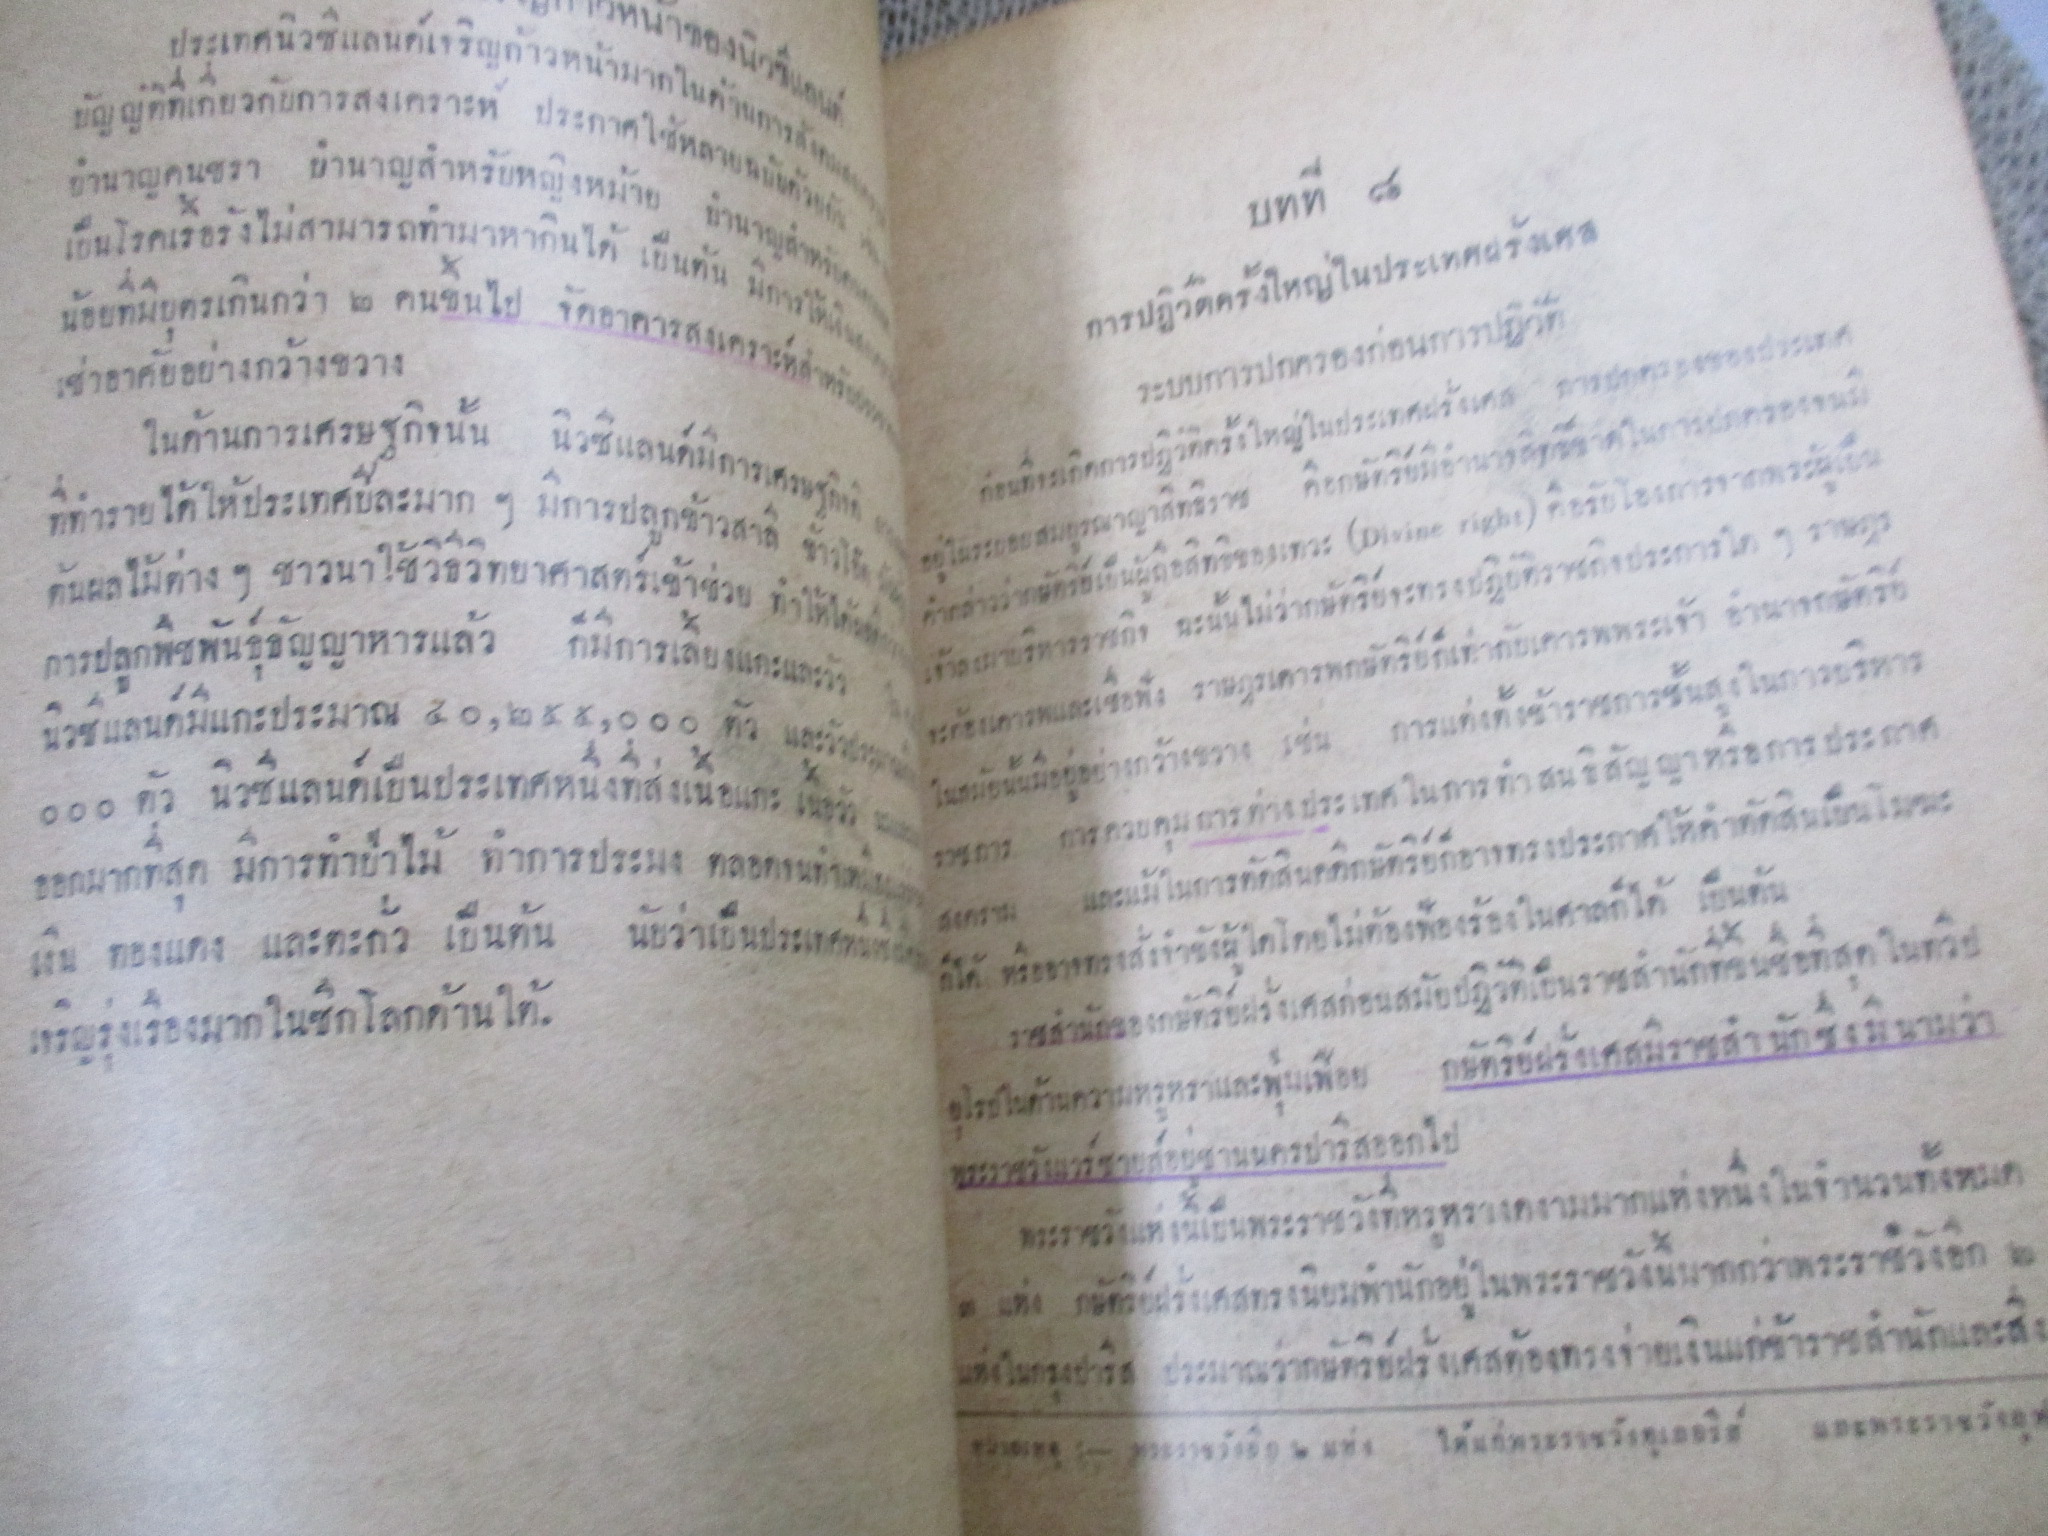 ก้าวหน้าของนิวซีแลนด์
ประเทศนิวซีแลนด์เจริญก้าวหน้ามากในด้านการสังคมสงเคราะห์
บัญญัติที่เกี่ยวกับการสงเคราะห์ ประกาศใช้หลายฉบับด้วยกัน
บำนาญคนชรา บำนาญสำหรับหญิงหม้าย บำนาญสำหรับ
เป็นโรคเรื้อรังไม่สามารถทำมาหากินได้ เป็นต้น มีการให้เงิน
น้อยที่มีบุตรเกินกว่า ๒ คนขึ้นไป จัดอาคารสงเคราะห์สำหรับ
เช่าอาศัยอย่างกว้างขวาง
ในด้านการเศรษฐกิจนั้น นิวซีแลนด์มีการเศรษฐกิจดี
ที่ทำรายได้ให้ประเทศปีละมาก ๆ มีการปลูกข้าวสาลี ข้าวโอ๊ต
ต้นผลไม้ต่าง ๆ ชาวนาใช้วิธีวิทยาศาสตร์เข้าช่วย ทำให้ได้
การปลูกพืชพันธุ์ธัญญาหารแล้ว ก็มีการเลี้ยงแกะและวัว
นิวซีแลนด์มีแกะประมาณ ๕๐,๒๕๕,๐๐๐ ตัว และวัวประมาณ
๐๐๐ ตัว นิวซีแลนด์เป็นประเทศหนึ่งที่ส่งเนื้อแกะ เนื้อวัว
ออกมากที่สุด มีการทำป่าไม้ ทำการประมง ตลอดจนทำเหมืองแร่
เงิน ทองแดง และตะกั่ว เป็นต้น นับว่าเป็นประเทศหนึ่งซึ่ง
เจริญรุ่งเรืองมากในซีกโลกด้านใต้.
บทที่ ๘
การปฏิวัติครั้งใหญ่ในประเทศฝรั่งเศส
ระบบการปกครองก่อนการปฏิวัติ
ก่อนที่จะเกิดการปฏิวัติครั้งใหญ่ในประเทศฝรั่งเศส การปกครองของประเทศ
อยู่ในระบอบสมบูรณาญาสิทธิราช คือกษัตริย์มีอำนาจสิทธิ์ขาดในการปกครองจนมี
คำกล่าวว่ากษัตริย์เป็นผู้ถือสิทธิของเทวะ (Divine right) คือรับโองการจากพระผู้เป็น
เจ้าลงมาบริหารราชกิจ ฉะนั้นไม่ว่ากษัตริย์จะทรงปฏิบัติราชกิจประการใด ๆ ราษฎร
จะต้องเคารพและเชื่อฟัง ราษฎรเคารพกษัตริย์ก็เท่ากับเคารพพระเจ้า อำนาจกษัตริย์
ในสมัยนั้นมีอยู่อย่างกว้างขวาง เช่น การแต่งตั้งข้าราชการชั้นสูงในการบริหาร
ราชการ การควบคุมการต่างประเทศในการทำสนธิสัญญาหรือการประกาศ
สงคราม และแม้ในการตัดสินคดีกษัตริย์ก็อาจทรงประกาศให้คำตัดสินเป็นโมฆะ
ก็ได้ หรืออาจทรงสั่งจำขังผู้ใดโดยไม่ต้องฟ้องร้องในศาลก็ได้ เป็นต้น
ราชสำนักของกษัตริย์ฝรั่งเศสก่อนสมัยปฏิวัติเป็นราชสำนักที่ขึ้นชื่อที่สุดในทวีป
ยุโรปในด้านความหรูหราและฟุ่มเฟือย กษัตริย์ฝรั่งเศสมีราชสำนักซึ่งมีนามว่า
พระราชวังแวร์ซายส์อยู่ชานนครปารีสออกไป
พระราชวังแห่งนี้เป็นพระราชวังที่หรูหรางดงามมากแห่งหนึ่งในจำนวนทั้งหมด
๓ แห่ง กษัตริย์ฝรั่งเศสทรงนิยมพำนักอยู่ในพระราชวังนี้มากกว่าพระราชวังอีก ๒
แห่งในกรุงปารีส ประมาณว่ากษัตริย์ฝรั่งเศสต้องทรงจ่ายเงินแก่ข้าราชสำนักและสิ่ง
หมายเหตุ :— พระราชวังอีก ๒ แห่ง ได้แก่พระราชวังตุเลอรีส์ และพระราชวัง